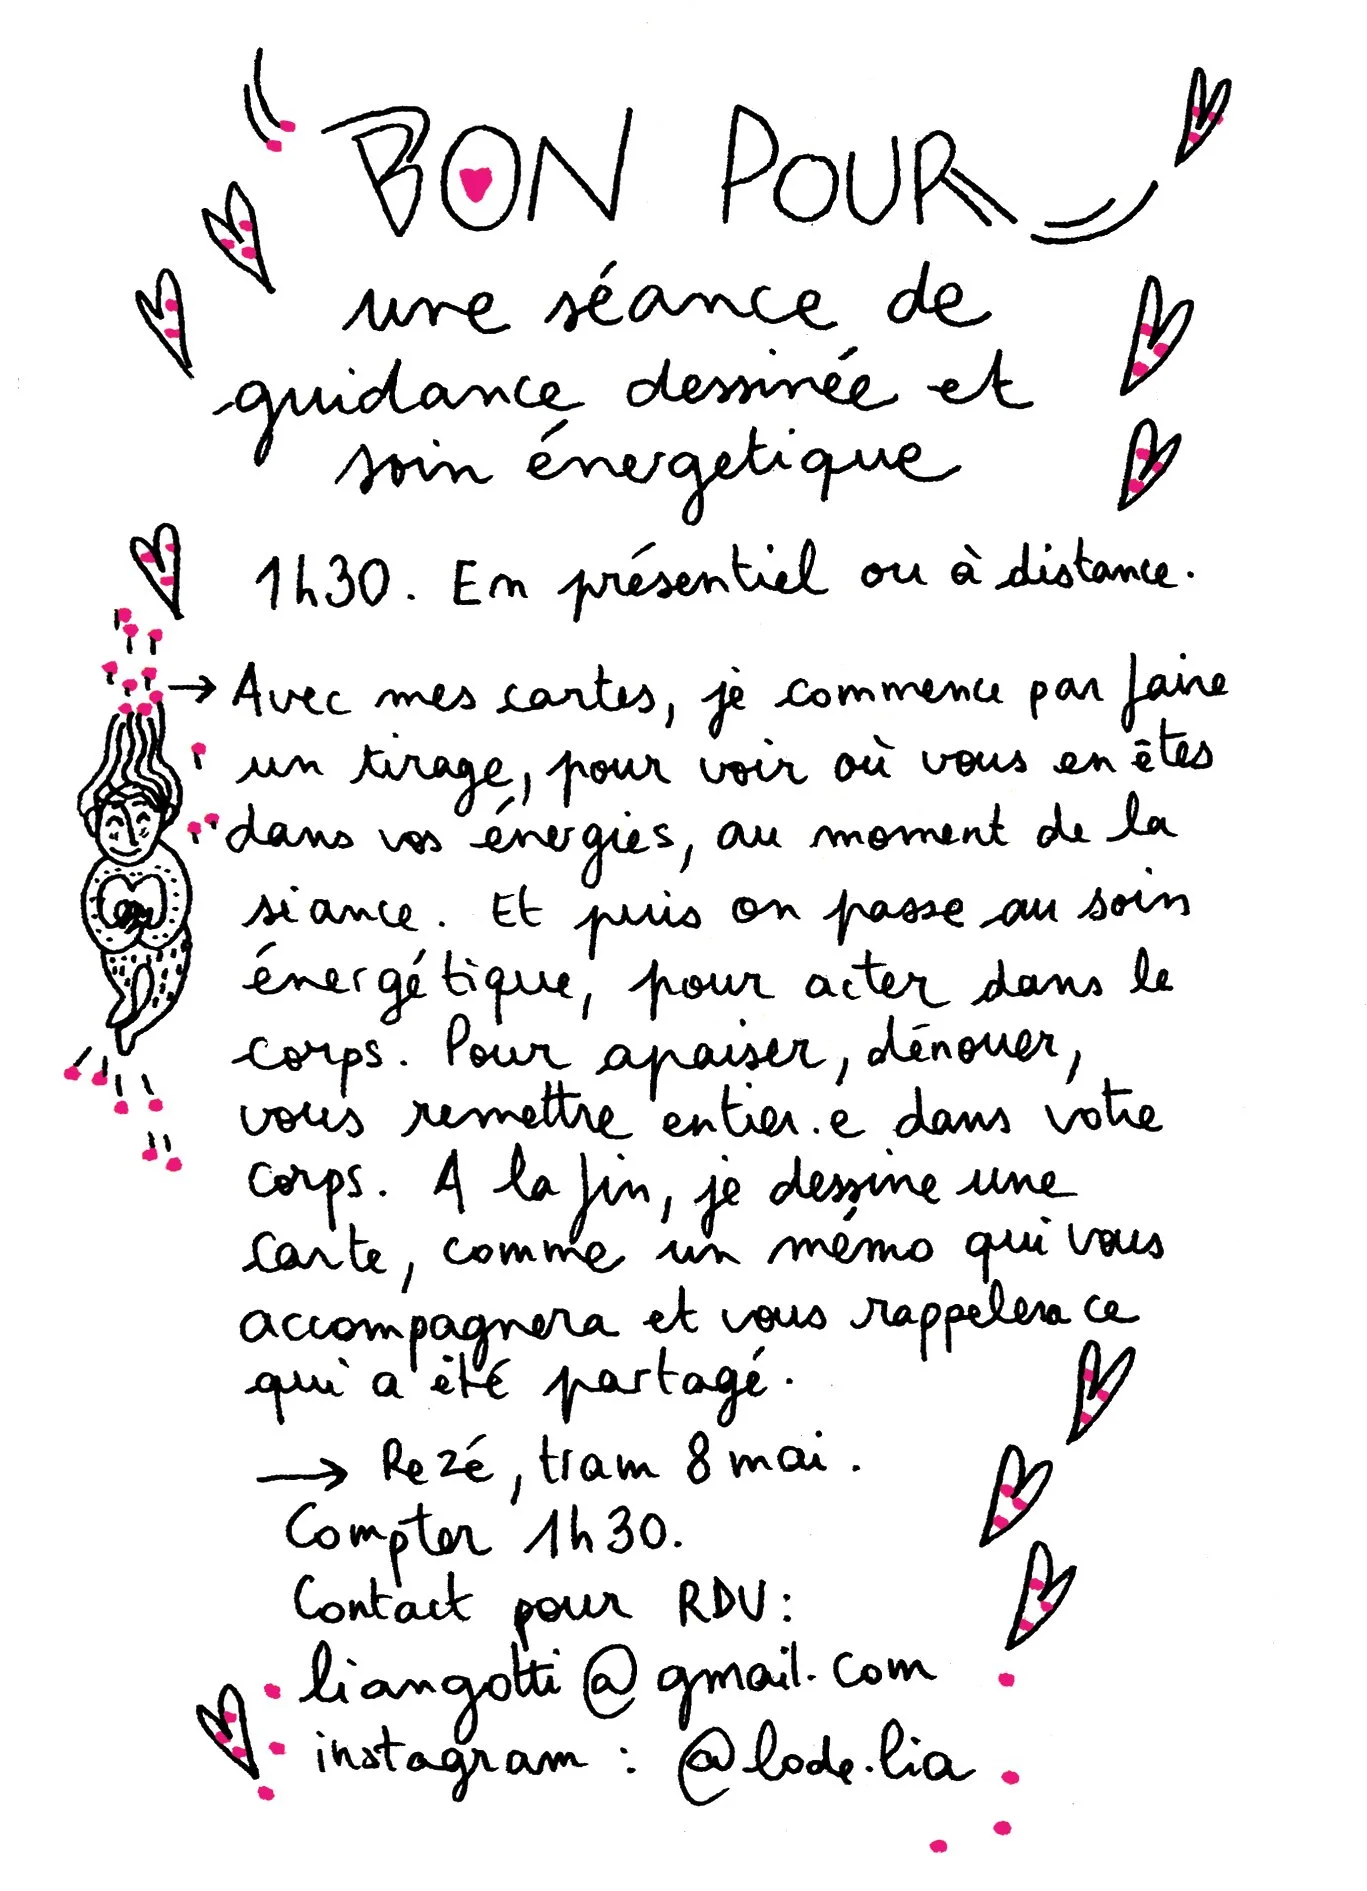 BON POUR
une séance de
guidance dessinée et
soin énergetique
1h30. En présentiel ou à distance.
→ Avec mes cartes, je commence par faire
un tirage, pour voir où vous en êtes
dans vos énergies, au moment de la
séance. Et puis on passe au soin
énergétique, pour acter dans le
corps. Pour apaiser, dénouer,
vous remettre entier.e dans votre
corps. A la fin, je dessine une
carte, comme un mémo qui vous
accompagnera et vous rappelera ce
qui a été partagé.
→ Rezé, tram 8 mai.
Compter 1h30.
Contact pour RDV :
liangotti@gmail.com
instagram : @lode.lia